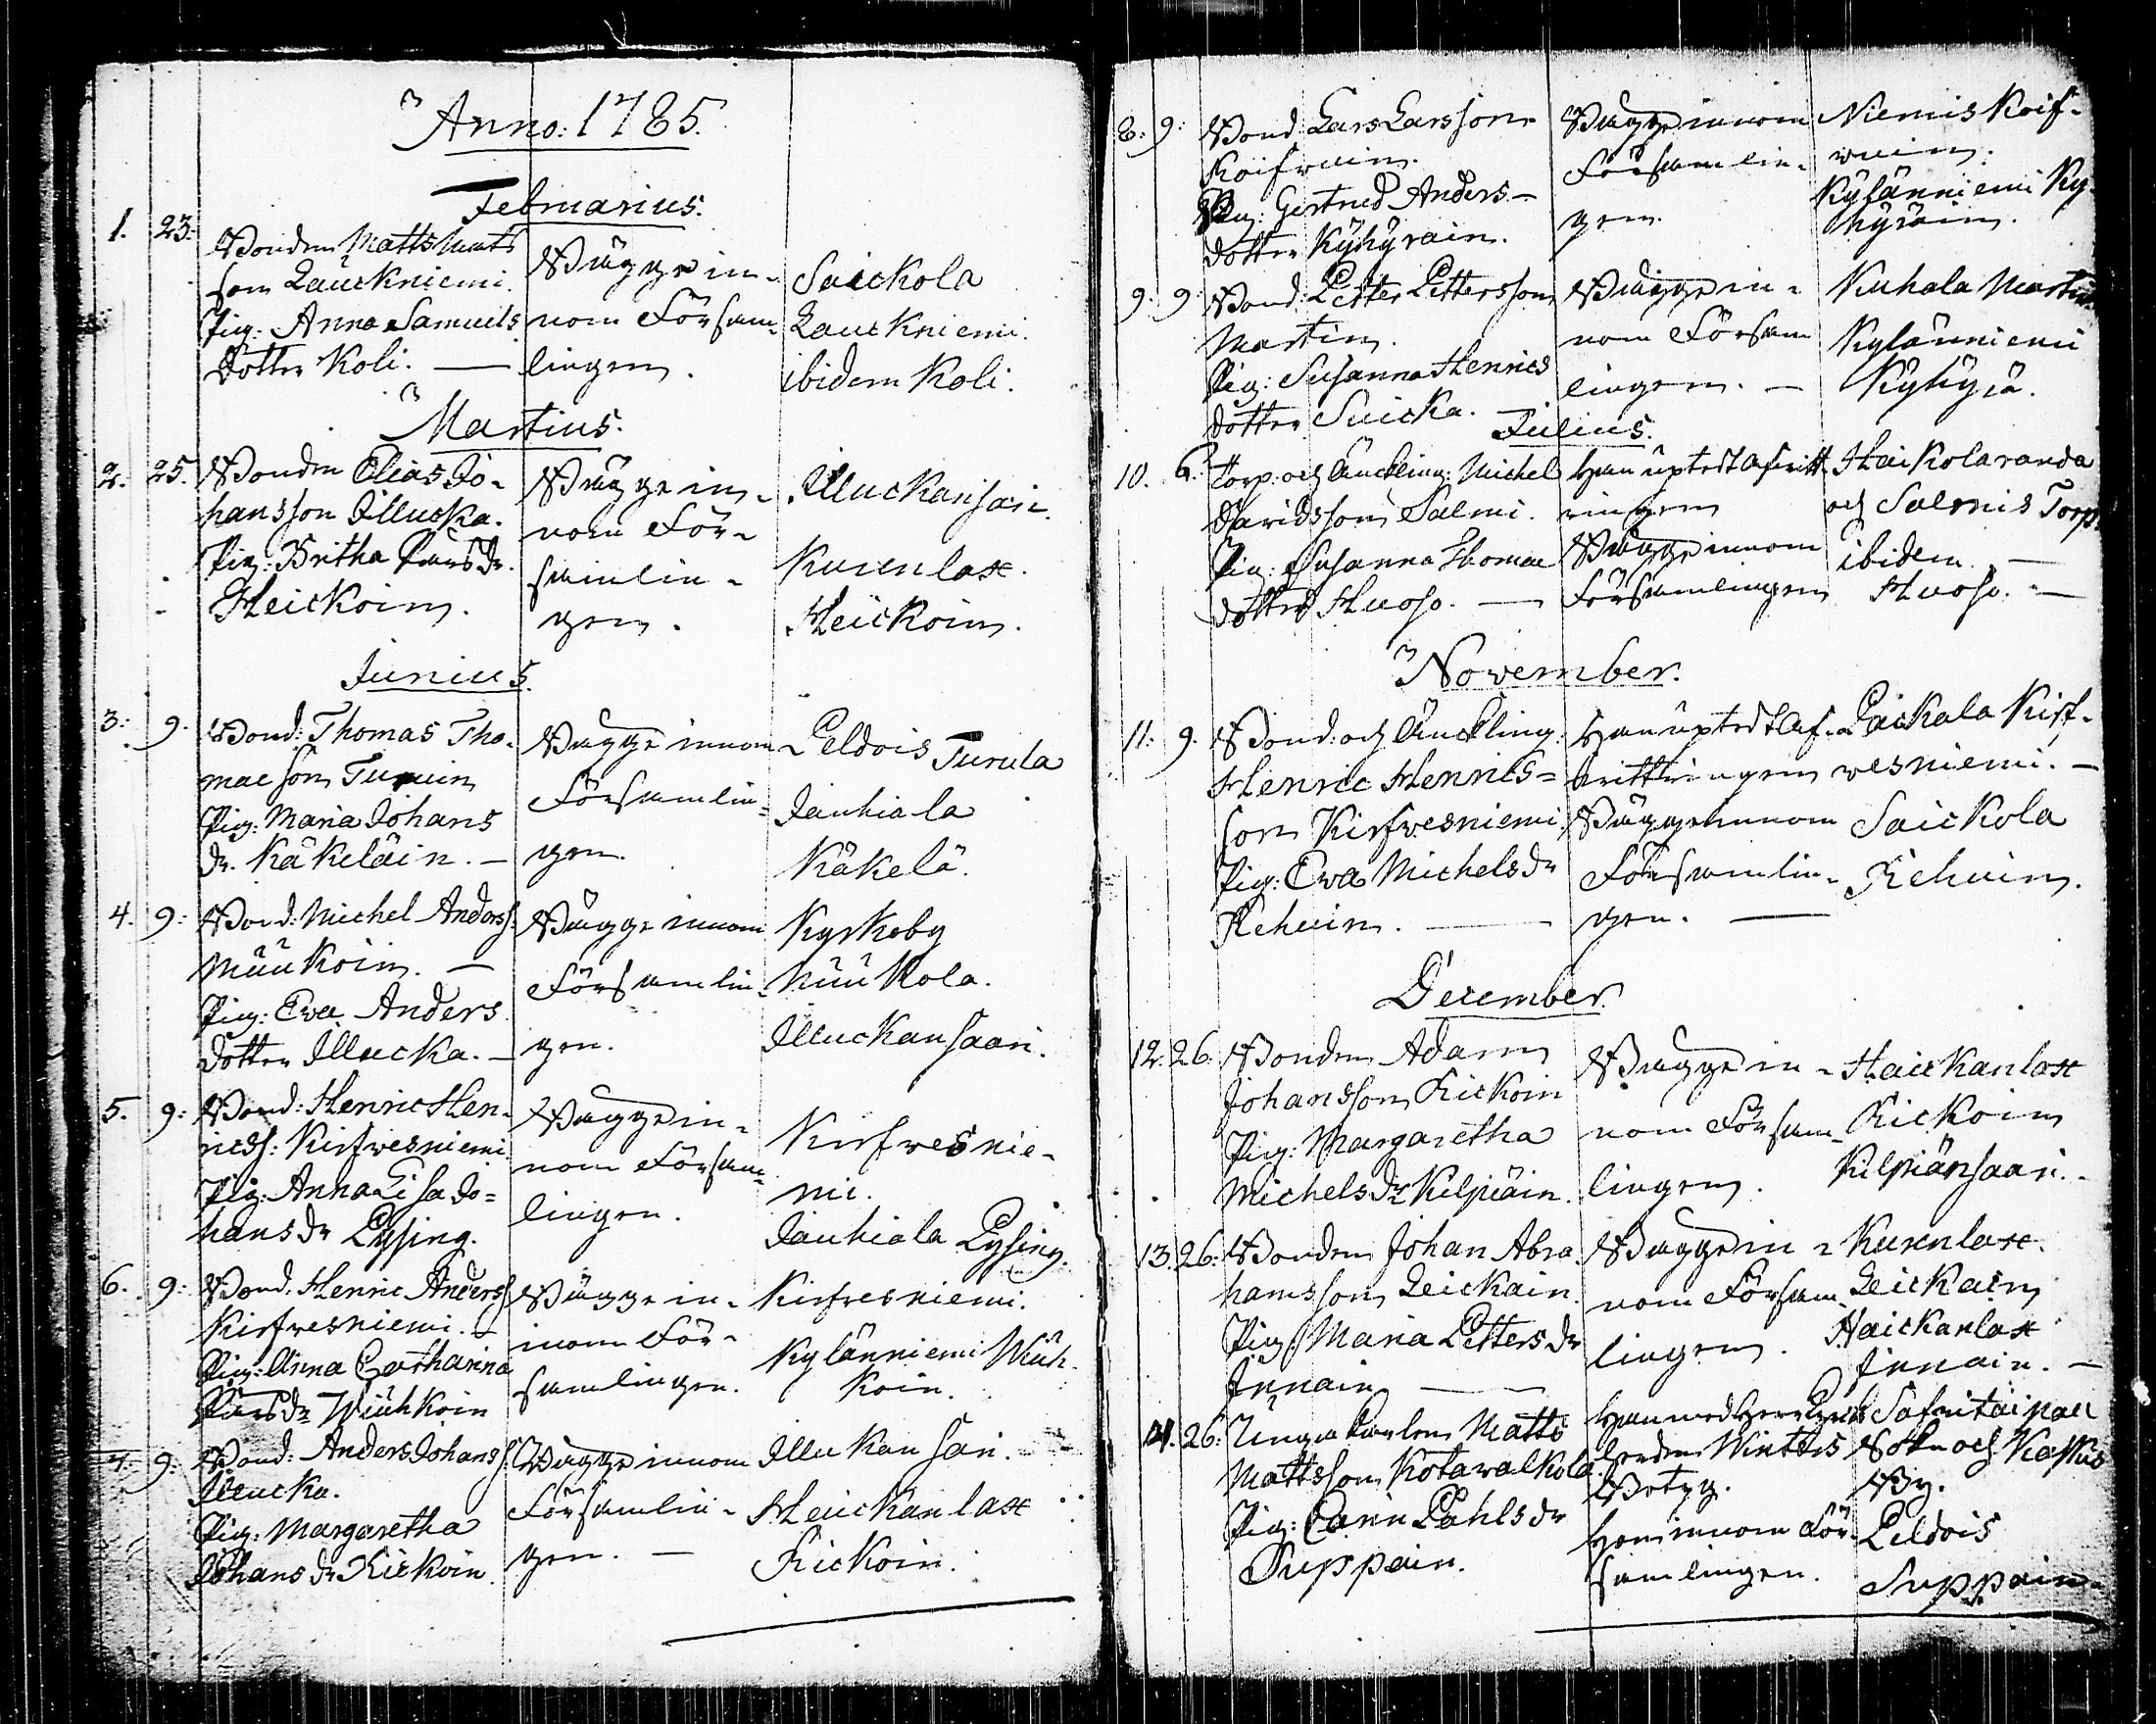 Anno: 1785.
Februarius.
1. 23. Bonden Matts Mats
son Lauckniemi.
Pig: Anna Samuels
dotter Koli. —
Bägge in-
nom Försam
lingen.
Saickola
Lauckniemi.
ibidem Koli.
Martius.
2. 25. Bonden Elias Jo-
hansson Illucka.
Pig: Britha Larsdr
Heickoin.
Bägge in-
nom För-
samlin-
gen.
Illuckansari.
Kurenlax.
Heickoin.
Junius.
3. 9. Bond: Thomas Tho-
mae son Turuin
Pig: Maria Johans
dr. Käkeläin. —
Bägge innom
Församlin-
gen.
Peldois Turula
Jauhiala
Käkelä.
4. 9: Bond: Michel Anderss:
Muukoin. —
Pig: Ewa Anders
dotter Illucka. —
Bägge innom
Församlin-
gen.
Kyrkeby
Muukola.
Illuckansaari.
5. 9: Bond: Henric Hen-
ricss: Kirfwesniemi
Pig: Anna Lisa Jo=
hansdr Lysing.
Bägge in-
nom Försam
lingen.
Kirfwesnie-
mi.
Jauhiala Lysing.
6. 9: Bond: Henric Anderss
Kirfwesniemi. —
Pig: Anna Catharina
Larsdr Wiuhkoin
Bägge in-
inom För-
samlingen.
Kirfwesniemi.
Kylänniemi Wiuh-
koin.
7. 9: Bond: Anders Johanss:
Illucka.
Pig: Margaretha
Johansdr Kickoin.
Bägge innom
Församlin-
gen. —
Illukansari.
Heickänlax
Kickoin.
8. 9: Bond: Lars Larsson
Koifwuin.
Pig: Gertrud Anders-
dotter Kyhyräin.
Bägge innom
Församlin-
gen.
Niemis Koif-
wuin.
Kylänniemi Ky-
hyräin.
9. 9: Bond: Petter Pettersson
Martin.
Pig: Susanna Henrics
dotter Suicka.
Bägge in-
nom Försam
lingen. —
Nuhala Martin
Kylänniemi
Kyhyrä.
Julius.
10. 6. Torp: och Änckling: Michel
Davidsson Salmi.
Pig: Susanna Thomae
dotter Huoso. —
Han uptedt afwitt
ringen
Bägge innom
Församlingen
Haikolaranda
och Salmis Torp.
ibidem —
Huoso. —
November.
11. 9. Bond: och Änckling:
Henric Henrics=
son Kirfwesniemi
Pig: Ewa Michelsdr
Kehuin. —
Han uptedt af-
wittringen
Bägge innom
Församlin-
gen. —
Laickala Kirf-
wesniemi. —
Saickola
Kehuin.
December.
12. 26. Bonden Adam
Johansson Kickoin
Pig: Margaretha
Michelsdr Kilpiäin.
Bägge in-
nom Försam-
lingen.
Haickanlax
Kickoin
Kilpiänsaari.
13. 26: Bonden Johan Abra
hamsson Leickain.
Pig: Maria Pettersdr
Innain —
Bägge in-
nom Försam-
lingen.
Kurenlax.
Leickain
Haickanlax
Innain. —
14. 26: Unga Karlen Matts
Mattsson Kotawalkola
Pig: Carin Påhlsdr
Suppain.
Han med Herr
Winthers
Betyg.
Hon innom För-
samlingen.
Säfwitaipall
Sokn och
By.
Peldois
Suppain